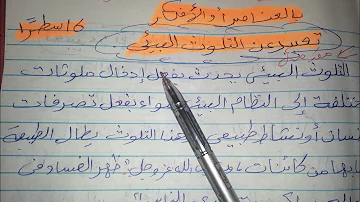 بالعناصر أو الأفكار
16 سطرًا
تعبير عن التلوث البيئي
التلوث البيئي يحدث بفعل إدخال ملوثات
مختلفة إلى النظام البيئي سواء بفعل تصرفات
إنسان أو نشاط طبيعي، هذا التلوث يطال الطبيعة
بها من كائنات الله عز وجل: "ظهر الفساد في